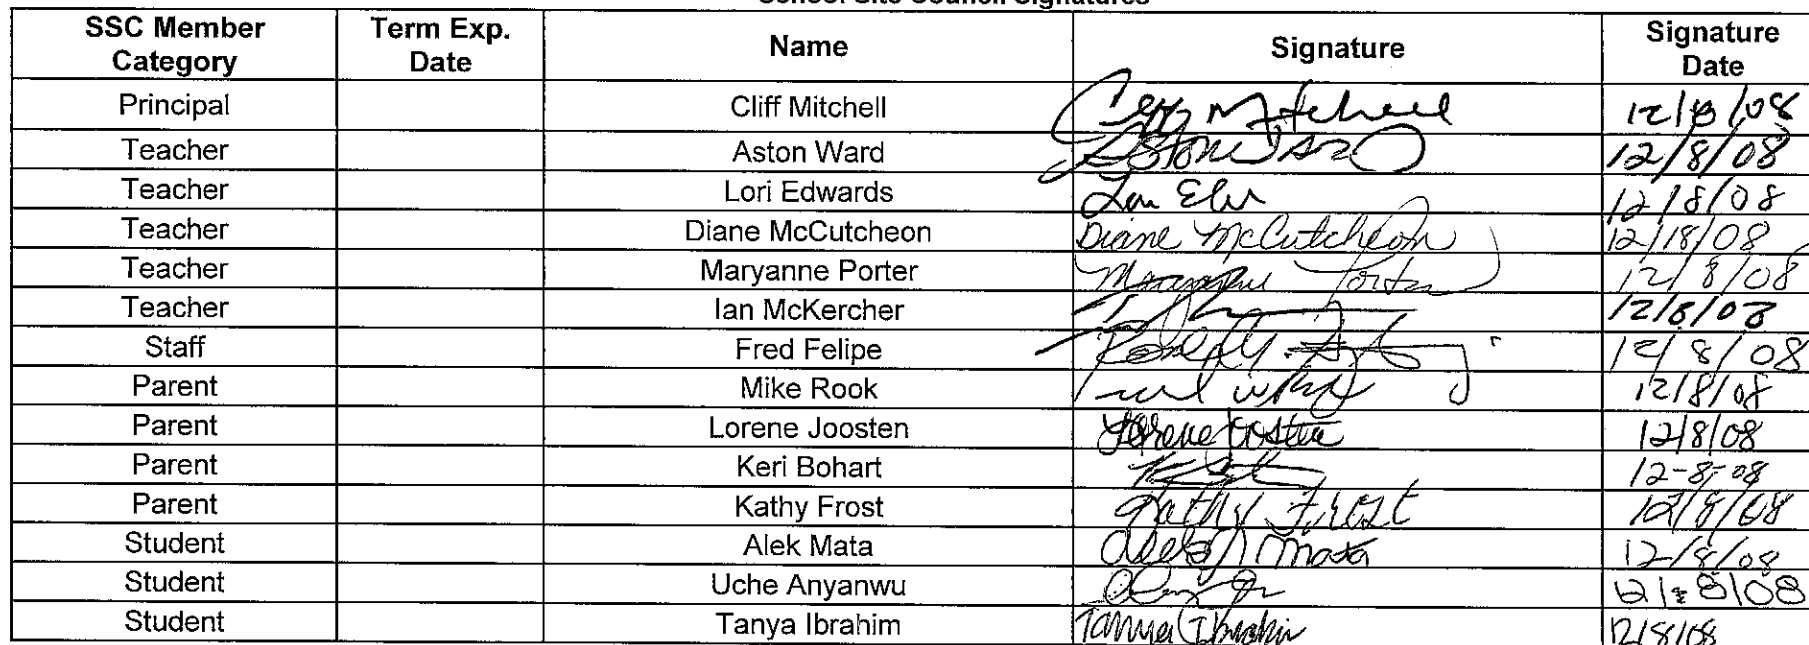 School Site Council Signatures
SSC Member Category Term Exp. Date Name Signature Signature Date
Principal Cliff Mitchell Cliff Mitchell 12/8/08
Teacher Aston Ward 12/8/08
Teacher Lori Edwards 12/8/08
Teacher Diane McCutcheon Diane McCutcheon 12/18/08
Teacher Maryanne Porter Maryanne Porter 12/8/08
Teacher Ian McKercher 12/8/08
Staff Fred Felipe 12/8/08
Parent Mike Rook 12/8/08
Parent Lorene Joosten Lorene Joosten 12/8/08
Parent Keri Bohart 12-8-08
Parent Kathy Frost Kathy Frost 12/8/08
Student Alek Mata Mata 12/8/08
Student Uche Anyanwu 12/8/08
Student Tanya Ibrahim Tanya Ibrahim 12/8/08